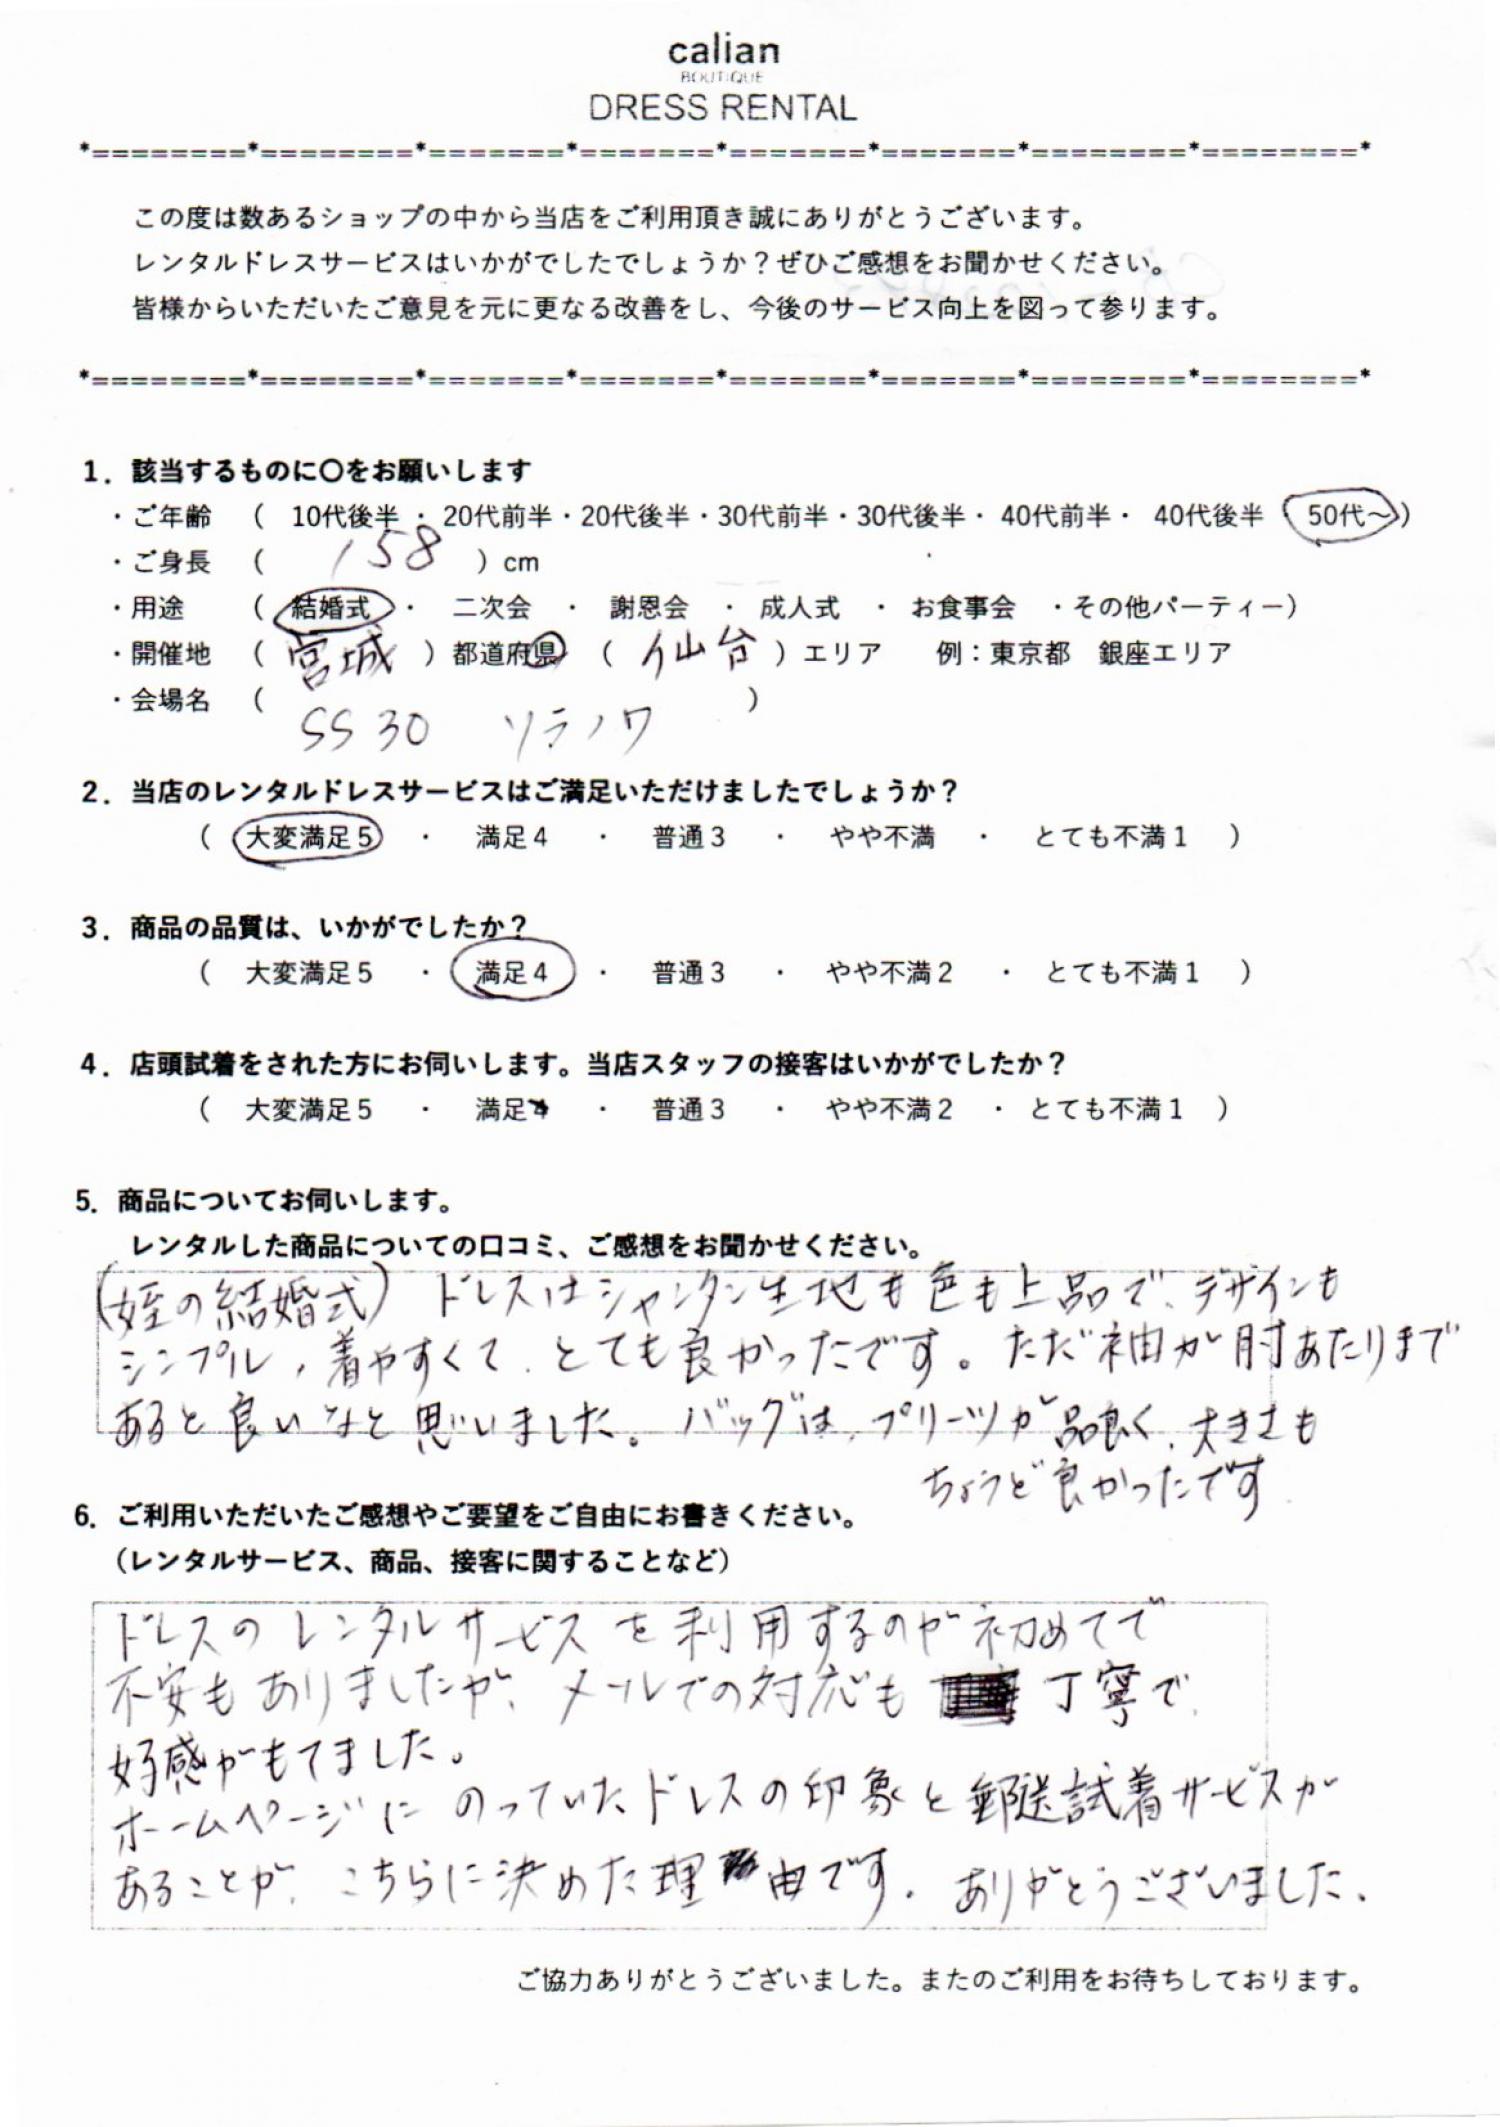 calian
BOUTIQUE
DRESS RENTAL
*========*========*=======*=======*=======*=======*========*========*
この度は数あるショップの中から当店をご利用頂き誠にありがとうございます。
レンタルドレスサービスはいかがでしたでしょうか？ぜひご感想をお聞かせください。
皆様からいただいたご意見を元に更なる改善をし、今後のサービス向上を図って参ります。
*========*========*=======*=======*=======*=======*========*========*
1．該当するものに〇をお願いします
・ご年齢 （ 10代後半 ・ 20代前半・20代後半・30代前半・30代後半・ 40代前半・ 40代後半 50代～）
・ご身長 （ 158 ）cm
・用途 （ 結婚式 ・ 二次会 ・ 謝恩会 ・ 成人式 ・ お食事会 ・その他パーティー）
・開催地 （ 宮城 ）都道府県 （ 仙台 ）エリア 例：東京都 銀座エリア
・会場名 （ SS30 ソラノワ ）
2．当店のレンタルドレスサービスはご満足いただけましたでしょうか？
（ 大変満足5 ・ 満足4 ・ 普通3 ・ やや不満 ・ とても不満1 ）
3．商品の品質は、いかがでしたか？
（ 大変満足5 ・ 満足4 ・ 普通3 ・ やや不満2 ・ とても不満1 ）
4．店頭試着をされた方にお伺いします。当店スタッフの接客はいかがでしたか？
（ 大変満足5 ・ 満足4 ・ 普通3 ・ やや不満2 ・ とても不満1 ）
5．商品についてお伺いします。
レンタルした商品についての口コミ、ご感想をお聞かせください。
(姪の結婚式) ドレスはシャンタン生地も色も上品で、デザインも
シンプル、着やすくて、とても良かったです。ただ袖が肘あたりまで
あると良いなと思いました。バッグは、プリーツが品良く、大きさも
ちょうど良かったです
6．ご利用いただいたご感想やご要望をご自由にお書きください。
（レンタルサービス、商品、接客に関することなど）
ドレスのレンタルサービスを利用するのが初めてで
不安もありましたが、メールでの対応も丁寧で、
好感がもてました。
ホームページにのっていたドレスの印象と郵送試着サービスが
あることが、こちらに決めた理由です。ありがとうございました。
ご協力ありがとうございました。またのご利用をお待ちしております。